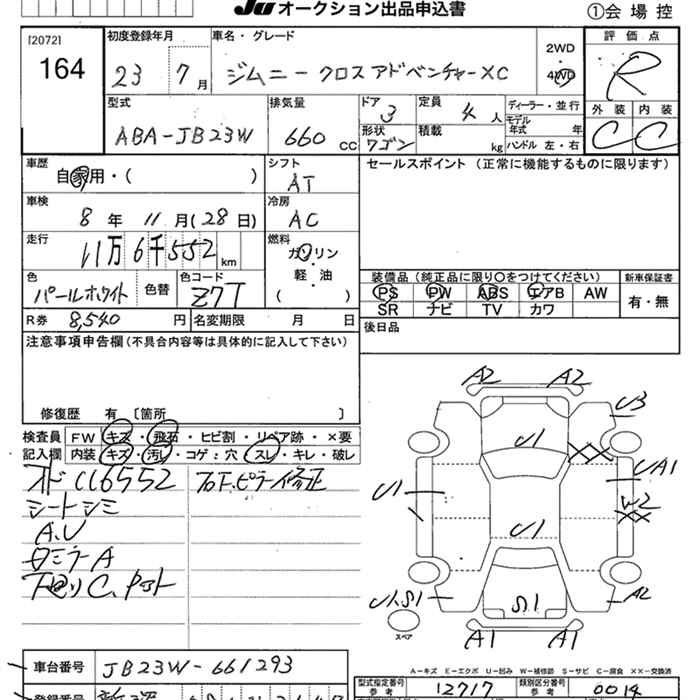 JU オークション出品申込書
①会場控
[2072]
164
初度登録年月
23 7月
車名・グレード
ジムニー クロスアドベンチャーXC
2WD
4WD
評価点
R
型式
ABA-JB23W
排気量
660 CC
ドア
3
定員
4人
形状
ワゴン
積載
kg
ディーラー・並行
モデル年式 年
ハンドル 左・右
外装 内装
C C
車歴
自家用・( )
シフト
AT
セールスポイント (正常に機能するものに限ります)
車検
8年 11月(28日)
冷房
AC
走行
11万6千552km
燃料
ガソリン
軽・油
( )
色
パールホワイト
色替
色コード
Z7T
装備品(純正品に限り○をつけてください)
PS PW ABS エアB AW
SR ナビ TV カワ
新車保証書
有・無
R券 8,540円
名変期限 月 日
後日品
注意事項申告欄(不具合内容等は具体的に記入して下さい)
修復歴 有 〔箇所 〕
検査員記入欄
FW キズ・飛石・ヒビ割・リペア跡・×要
内装 キズ・汚レ・コゲ:穴・スレ・キレ・破レ
シートシミ
A.U
下回りC.
A2 A2
U3
U1
UA1
U1
W2
U1
U1.S1
S1
A2
スペア
A1 A1
A-キズ E-エクボ U-凹み W-補修跡 S-サビ C-腐食 ××-交換済
車台番号
JB23W-661293
型式指定番号
参考
12717
類別区分番号
参考
0014
登録番号